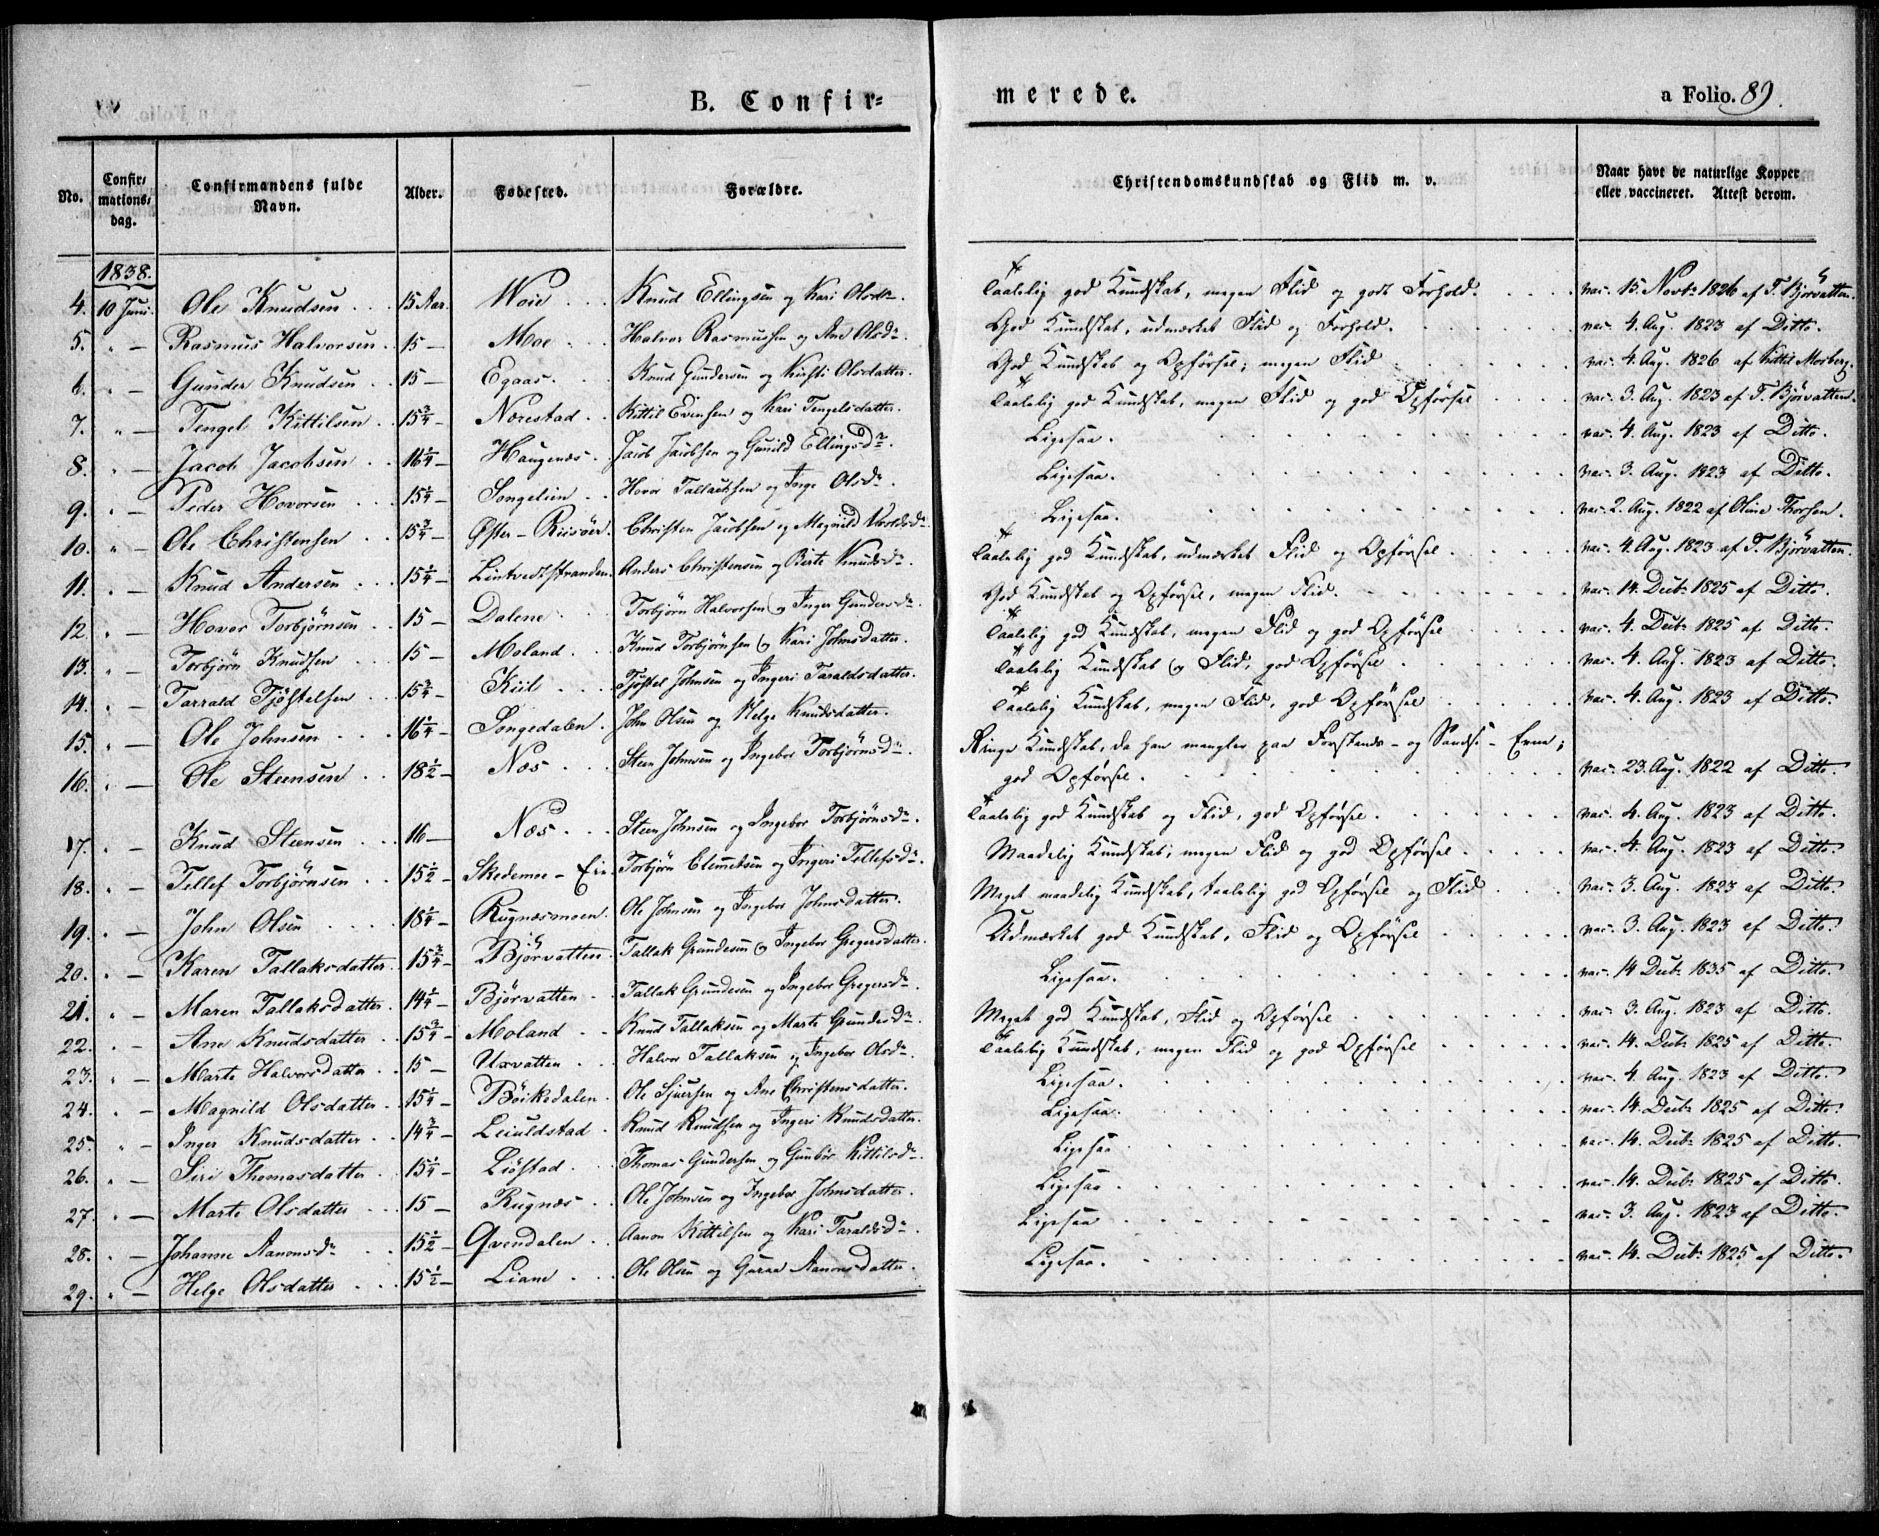 B. Confirmerede. a Folio. 89.
No. | Confirmations-dag. | Confirmandens fulde Navn. | Alder. | Fødested. | Forældre. | Christendomskundskab og Flid m. v. | Naar havt de naturlige Kopper eller vaccineret. Attest derom.
1838.
4. 10 Juni. Ole Knudsen 15 Aar. Woie Knud Ellingsen og Kari Olsdr. Taalelig god Kundskab, megen Flid og godt Forhold. vac. 15. Novbr 1826 af T. Bjørvatten.
5. " — Rasmus Halvorsen 15 — Moe Halvor Rasmussen og Ane Olsdr. God Kundskab, udmærket Flid og Forhold. vac. 4. Aug. 1823 af Ditto.
6. " — Gunder Knudsen 15 — Egaas Knud Gundersen og Kirsti Olsdatter. God Kundskab og Opførsel; megen Flid vac. 4. Aug. 1826 af Kittil Morberg.
7. " — Tengel Kittilsen 15¾ — Nærestad Kittil Evensen og Kari Tengelsdatter. Taalelig god Kundskab, megen Flid og god Opførsel vac. 3. Aug. 1823 af T. Bjørvatten.
8. " — Jacob Jacobsen 16¼ — Haugenæs Jacob Jacobsen og Gunild Ellingsdr. Ligesaa. vac. 4. Aug. 1823 af Ditto.
9. " — Peder Hovorsen 15¼ — Songelien Hovor Tallaksen og Inge Olsdr. Ligesaa. vac. 3. Aug. 1823 af Ditto.
10. " — Ole Christensen 15¾ — Øster-Riisöer. Christen Jacobsen og Magnild Ligesaa. vac. 2. Aug. 1822 af Oline Thorsen.
11. " — Knud Andersen 15¼ — Lintvedtstranden. Anders Christensen og Berte Knudsdr. Taalelig god Kundskab, udmærket Flid og Opførsel. vac. 4. Aug. 1823 af T. Bjørvatten.
12. " — Hovor Torbjørnsen 15 — Dalene Torbjørn Halvorsen og Inger Gundersdr. God Kundskab og Opførsel, megen Flid. vac. 14. Decbr 1825 af Ditto.
13. " — Torbjørn Knudsen 15 — Moland Knud Torbjørnsen og Kari Johnsdatter. Taalelig god Kundskab, megen Flid og god Opførsel vac. 4. Decbr 1825 af Ditto.
14. " — Tarrald Tjøstelsen 15¾ — Kiil Tjøstel Johnsen og Ingeri Taraldsdatter. Taalelig Kundskab og Flid, god Opførsel vac. 4. Aug. 1823 af Ditto.
15. " — Ole Johnsen 16¼ — Songedalen John Olsen og Helge Knudsdatter. Taalelig Kundskab, megen Flid, god Opførsel vac. 4. Aug. 1823 af Ditto.
16. " — Ole Steensen 18½ — Næs Steen Johnsen og Ingebor Torbjørnsdr. Ringe Kundskab, da han mangler paa Forstands- og Sands- Evne;
god Opførsel. vac. 23. Aug. 1822 af Ditto.
17. " — Knud Steensen 16 — Næs Steen Johnsen og Ingebor Torbjørnsdr. Taalelig god Kundskab og Flid, god Opførsel. vac. 4. Aug. 1823 af Ditto.
18. " — Tellef Torbjørnsen 15½ — Skedemoe-Eie. Torbjørn Clemetsen og Ingeri Tellefsdr. Maadelig Kundskab; megen Flid og god Opførsel vac. 4. Aug. 1823 af Ditto.
19. " — John Olsen 18¼ — Rugnæsmoen. Ole Johnsen og Ingebor Johnsdatter. Meget maadelig Kundskab, taalelig god Opførsel og Flid vac. 3. Aug. 1823 af Ditto.
20. " — Karen Tallaksdatter 15¾ — Bjørvatten Tallak Grundesen og Ingebor Gregersdatter. Udmærket god Kundskab, Flid og Opførsel vac. 3. Aug. 1823 af Ditto.
21. " — Maren Tallaksdatter 14¼ — Bjørvatten Tallak Grundesen og Ingebor Gregersdr. Ligesaa. vac. 14 Decbr 1835 af Ditto.
22. " — Ane Knudsdatter 15¾ — Moland Knud Tallaksen og Marte Grundesdr. Meget god Kundskab, Flid og Opførsel vac. 3. Aug. 1823 af Ditto.
23. " — Marte Halvorsdatter 15 — Uxvatten Halvor Tallaksen og Ingebor Olsdr. Taalelig Kundskab, megen Flid og god Opførsel vac. 14. Decbr 1825 af Ditto.
24. " — Magnild Olsdatter 15¼ — Böiksdalen Ole Sjursen og Ane Christensdatter. Ligesaa. vac. 4. Aug. 1823 af Ditto.
25. " — Inger Knudsdatter 14¾ — Leiuldstad Knud Knudsen og Ingeri Knudsdatter. Ligesaa. vac. 14. Decbr 1825 af Ditto.
26. " — Siri Thomasdatter 15¼ — Liøstad Thomas Gundersen og Gunbör Kittilsdr. Ligesaa vac. 14. Decbr 1825 af Ditto.
27. " — Marte Olsdatter 15 — Rugnæs Ole Johnsen og Ingebor Johnsdatter. Ligesaa vac. 14. Decbr 1825 af Ditto.
28. " — Johanne Aanonsdr 15½ — Qvendalen Aanon Kittilsen og Kari Taraldsdr Ligesaa vac. 3. Aug. 1823 af Ditto.
29. " — Helge Olsdatter 15½ — Liane Ole Olsen og Gurae Aanonsdatter. Ligesaa. vac. 14. Decbr 1825 af Ditto.